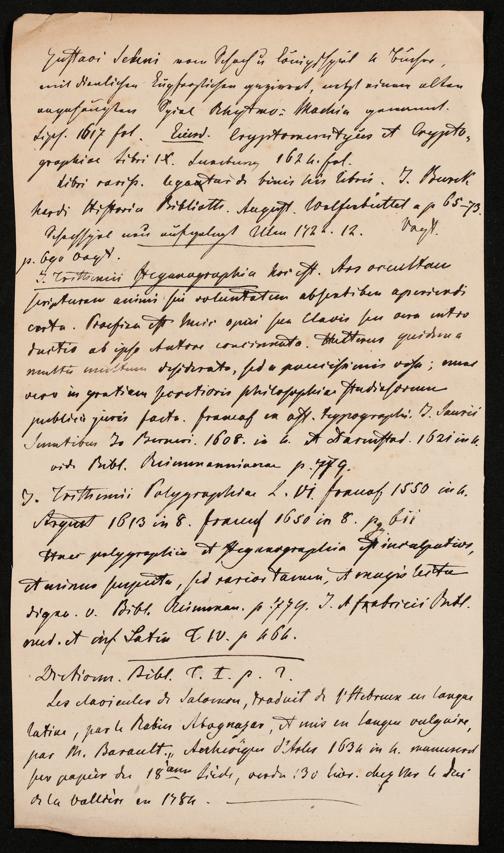 Gustavi Seleni vom Schach u Königsspiel 4 Bücher,
mit dienlichen Kupferstichen geziert, nebst einem alten
angefügten Spiel Rhytmo-Machia genannt.
Lips. 1617 fol. Eiusd. Cryptomenityces et Crypto-
graphiae Libri IX. Luneburg 1624. fol.
Libri rariss. legantur de binis his libris. J. Burck-
hardi Historia Biblioth. August. Wolfenbuttel a p 65-73.
Schachspiel neu aufgelegt Ulm 172 . 12. Vogt.
p. 690 Vogt.
J. Trithemii Steganographia hoc est. Ars occultam
scripturam animi sui voluntatem absentibus aperiendi
certa. Praefixa est huic operi sua Clavis seu vera intro
ductio ab ipso Autore concinnata. Hactenus quidem a
multis multum desiderata, sed a paucissimis visa; nunc
vero in gratiam secretioris philosophiae Studiosorum
publici juris facta. Francof ex off. typographi. J. Saurii
Sumtibus Jo Berneri. 1608. in 4. et Darmstad. 1621 in 4.
vid. Bibl. Reimmannianae p. 779.
J. Trithemii Polygraphiae L. VI. Francof 1550 in 4.
August 1613 in 8. Francof 1650 in 8. p. 611
Haec polygraphia et Steganographia
et minus suspecta, sed rarior tamen, et magis lectu
digna. v. Bibl. Reimman. p. 779. J. A Fabricii Bibl.
med. et inf Latin T IV. p 464.
Dictionn. Bibl. T. I. p. 7.
Les clavicules de Salomon, traduit de l'Hebreux en langue
latine, par le Rabin Abognazar, et mis en langue vulgaire,
par M. Barault, Archevêque d'Arles 1634 in 4. manuscrit
sur papier du 18 ème Siècle, vendu 30 livr. chez Mr le Duc
de la Vallière en 1784.